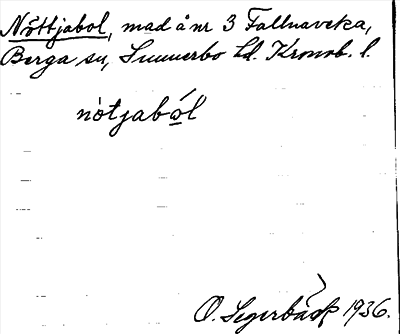 Nöttjabol, mad å nr 3 Fallnaveka,
Berga sn, Sunnerbo hd. Kronob. l.
nòtjaból
O. Segerbäck 1936.